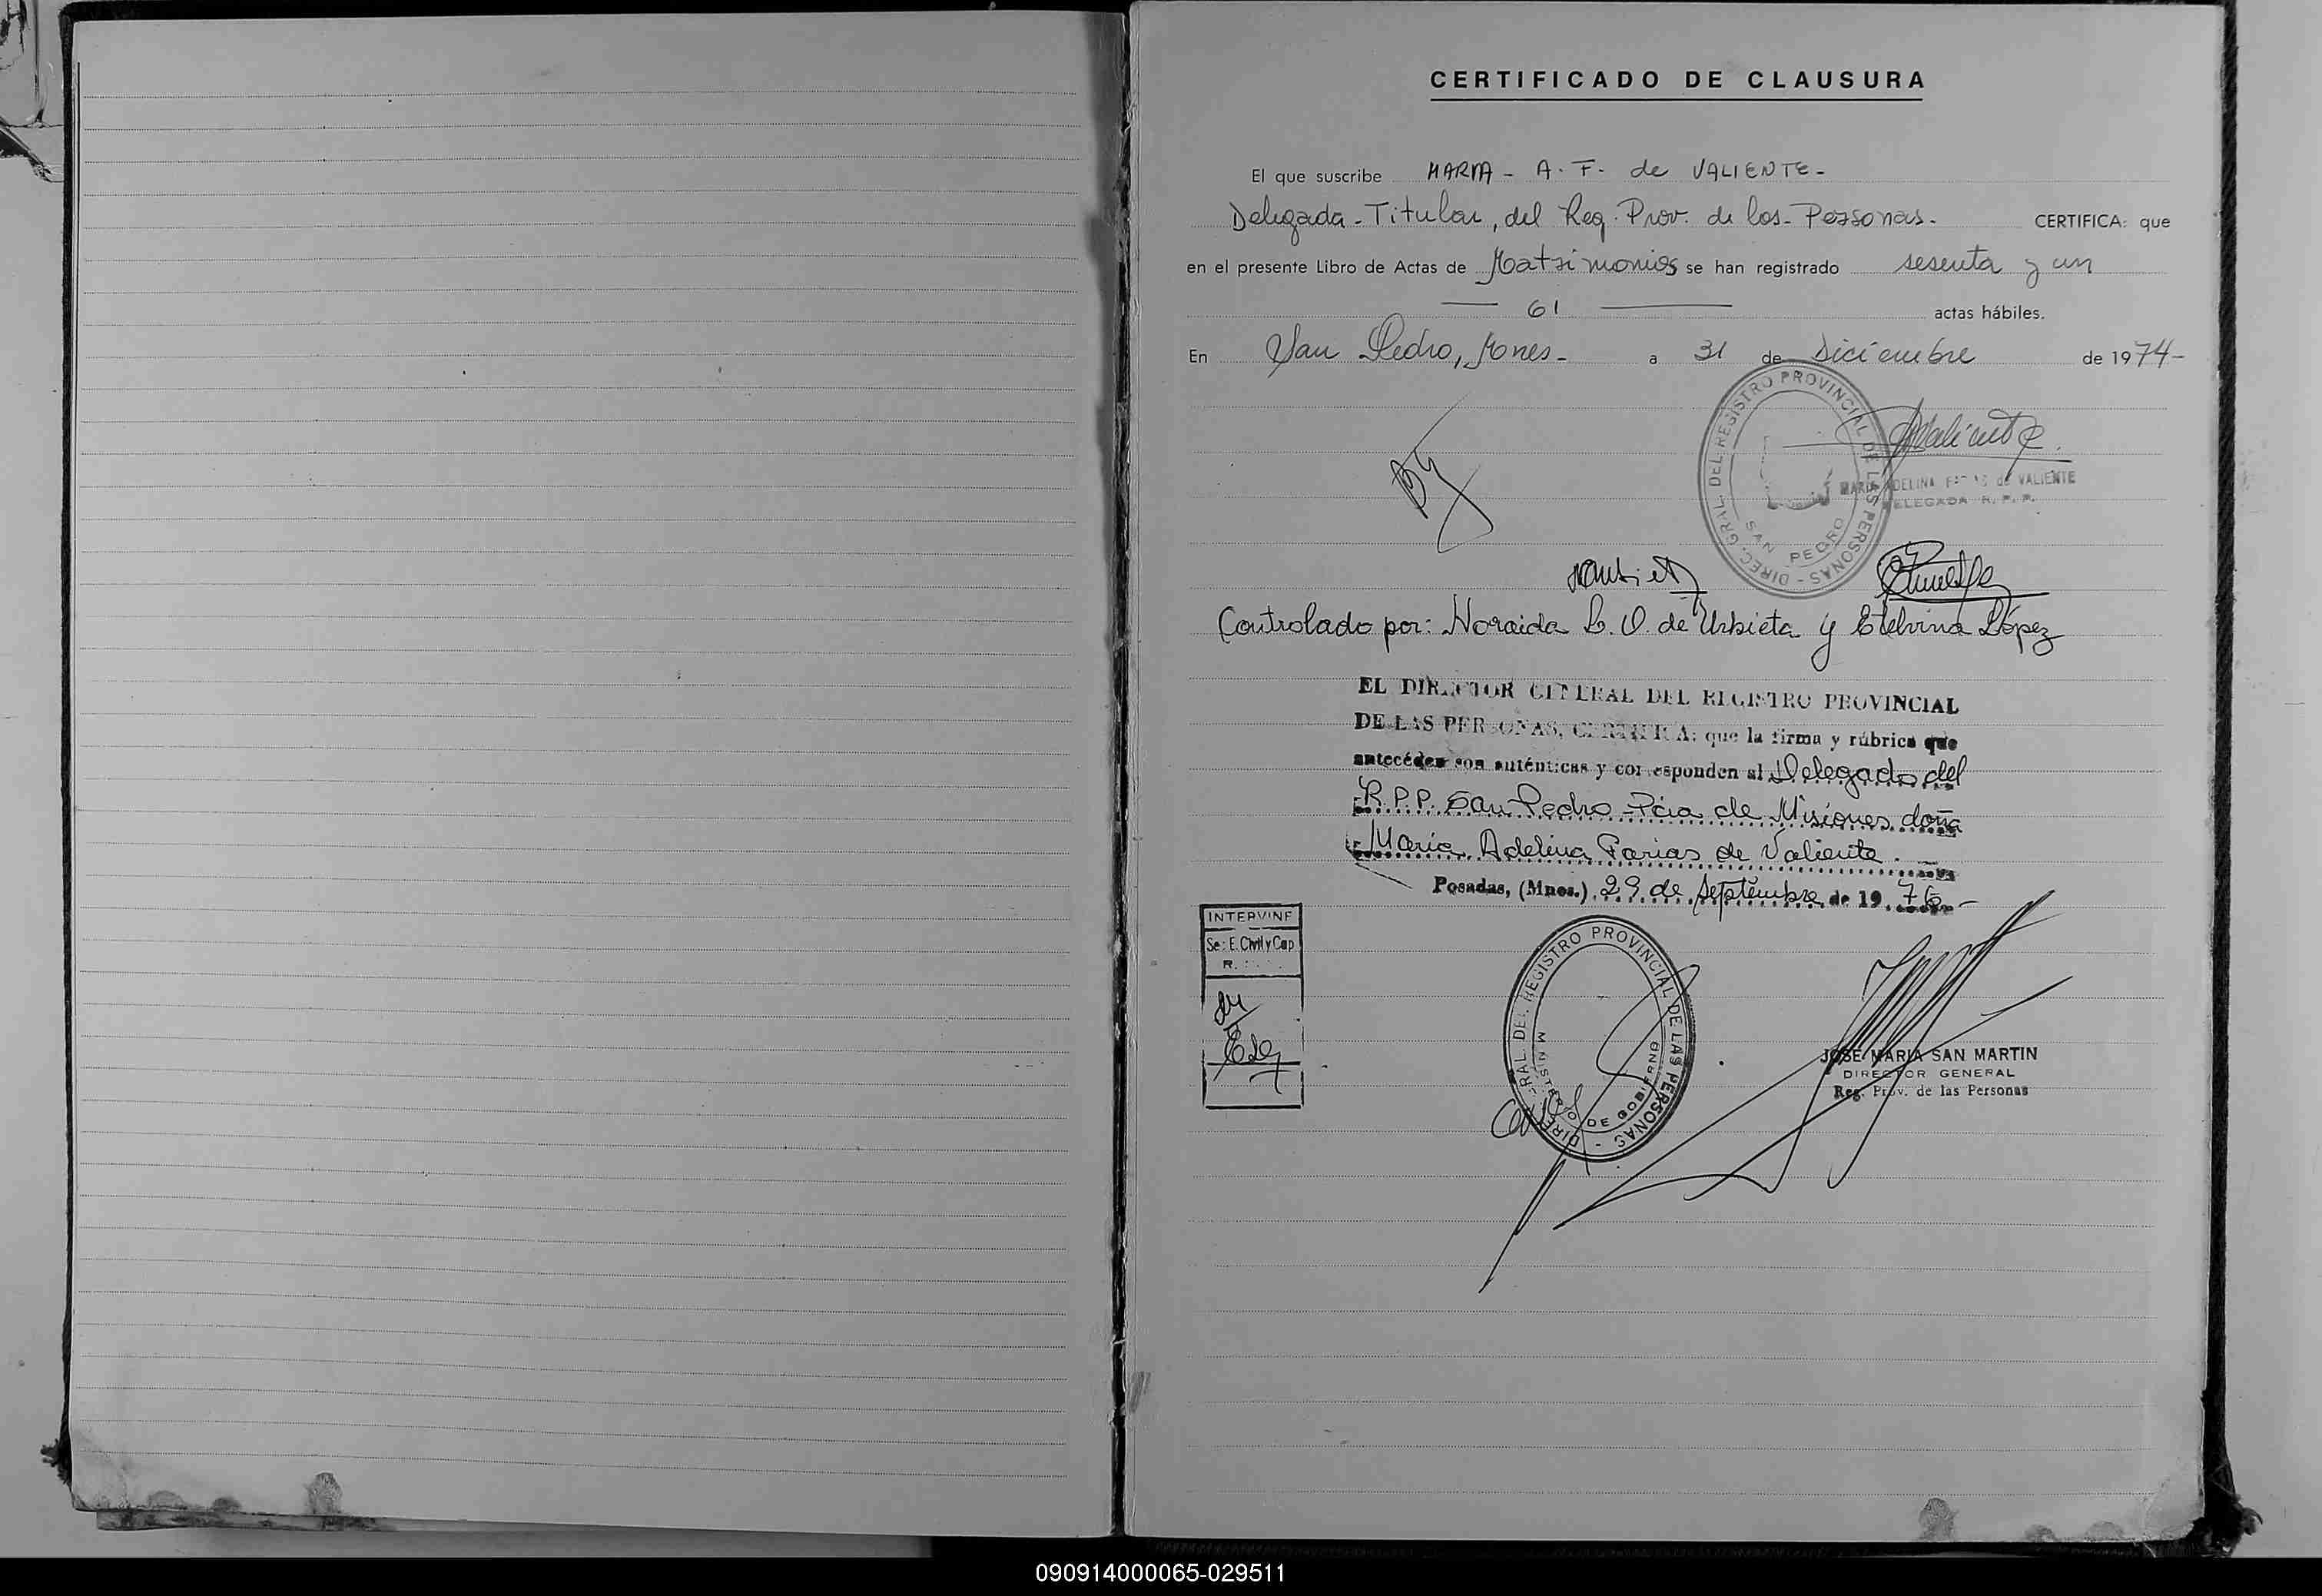 CERTIFICADO DE CLAUSURA
El que suscribe MARIA - A. F. de VALIENTE -
Delegada - Titular, del Reg. Prov. de los - Personas - CERTIFICA: que
en el presente Libro de Actas de Matrimonios se han registrado sesenta y un
61 actas hábiles.
En San Pedro, Mnes - a 31 de Diciembre de 1974 -
DIREC. GRAL. DEL REGISTRO PROVINCIAL DE LAS PERSONAS -
SAN PEDRO
MARIA ADELINA FARIAS de VALIENTE
DELEGADA R. P. P.
Controlado por: Noraida L. O. de Urbieta y Etelvina López
EL DIRECTOR GENERAL DEL REGISTRO PROVINCIAL
DE LAS PERSONAS, CERTIFICA: que la firma y rúbrica que
anteceden son auténticas y corresponden al Delegado del
R.P.P. San Pedro - Pcia de Misiones, doña
Maria Adelina Farias de Valiente.
Posadas, (Mnes.), 29 de septiembre de 19 76 -
INTERVINE
Se: E. Civil y Cap
R.
REGISTRO PROVINCIAL DE LAS PERSONAS -
MINISTERIO DE GOBIERNO
JOSE MARIA SAN MARTIN
DIRECTOR GENERAL
Reg. Prov. de las Personas
090914000065-029511